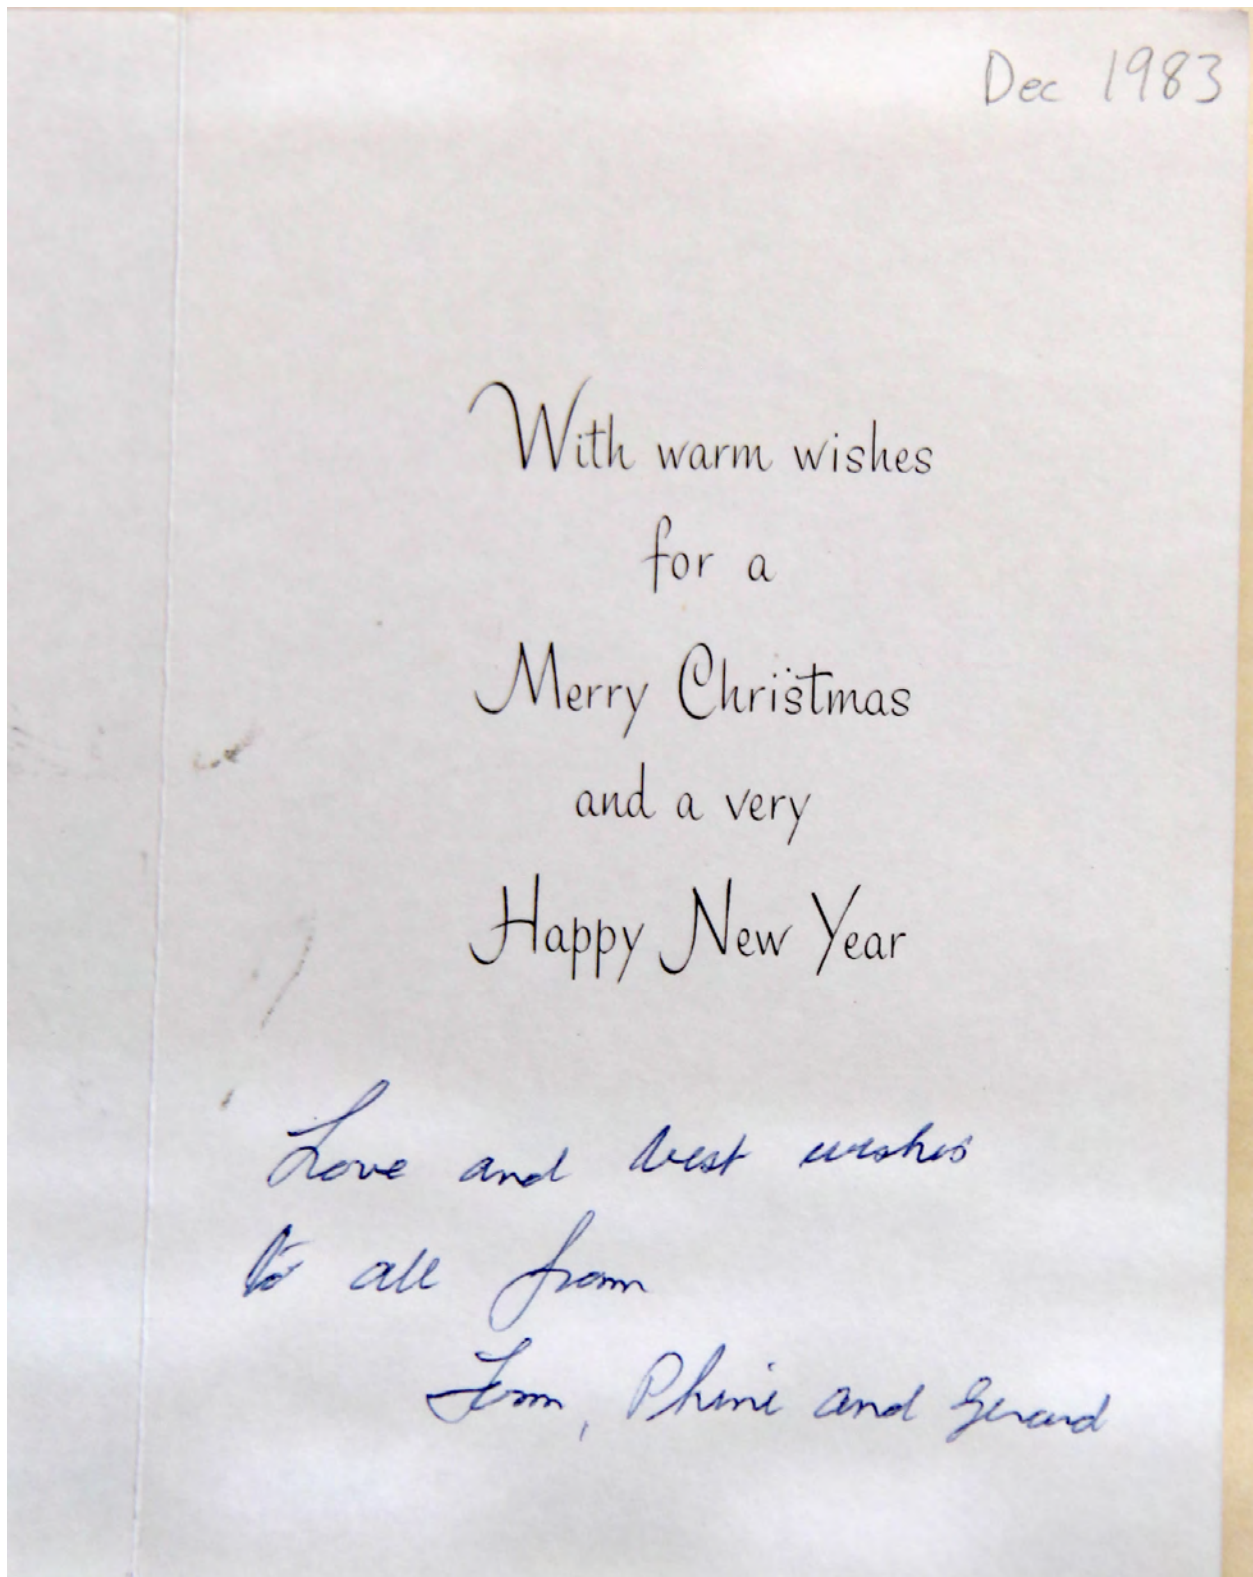 Dec 1983
With warm wishes
for a
Merry Christmas
and a very
Happy New Year
Love and best wishes
to all from
Tom, Phine and Gerard